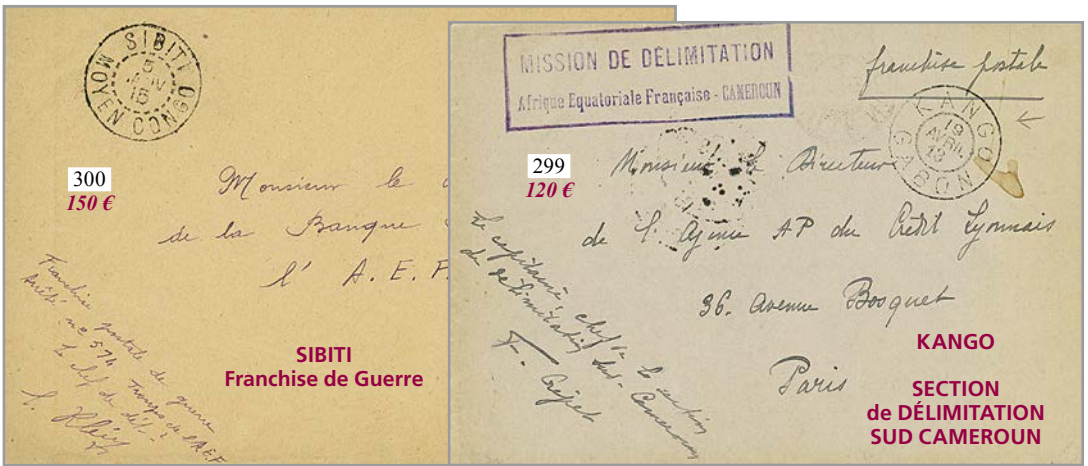 SIBITI
5
JANV
15
MOYEN CONGO
300
150 €
Monsieur le
de la Banque
l' A. E. F.
Franchise postale de guerre
Arrêté no 574 Troupes de l'A.E.F
Le chef de dét.t
SIBITI
Franchise de Guerre
MISSION DE DÉLIMITATION
Afrique Equatoriale Française - CAMEROUN
franchise postale
KANGO
19
AVRIL
13
GABON
299
120 €
Monsieur le Directeur
de l'Agence AP du Crédit Lyonnais
36. Avenue Bosquet
Paris
Le capitaine, chef de la section
de délimitation Sud-Cameroun
KANGO
SECTION
de DÉLIMITATION
SUD CAMEROUN